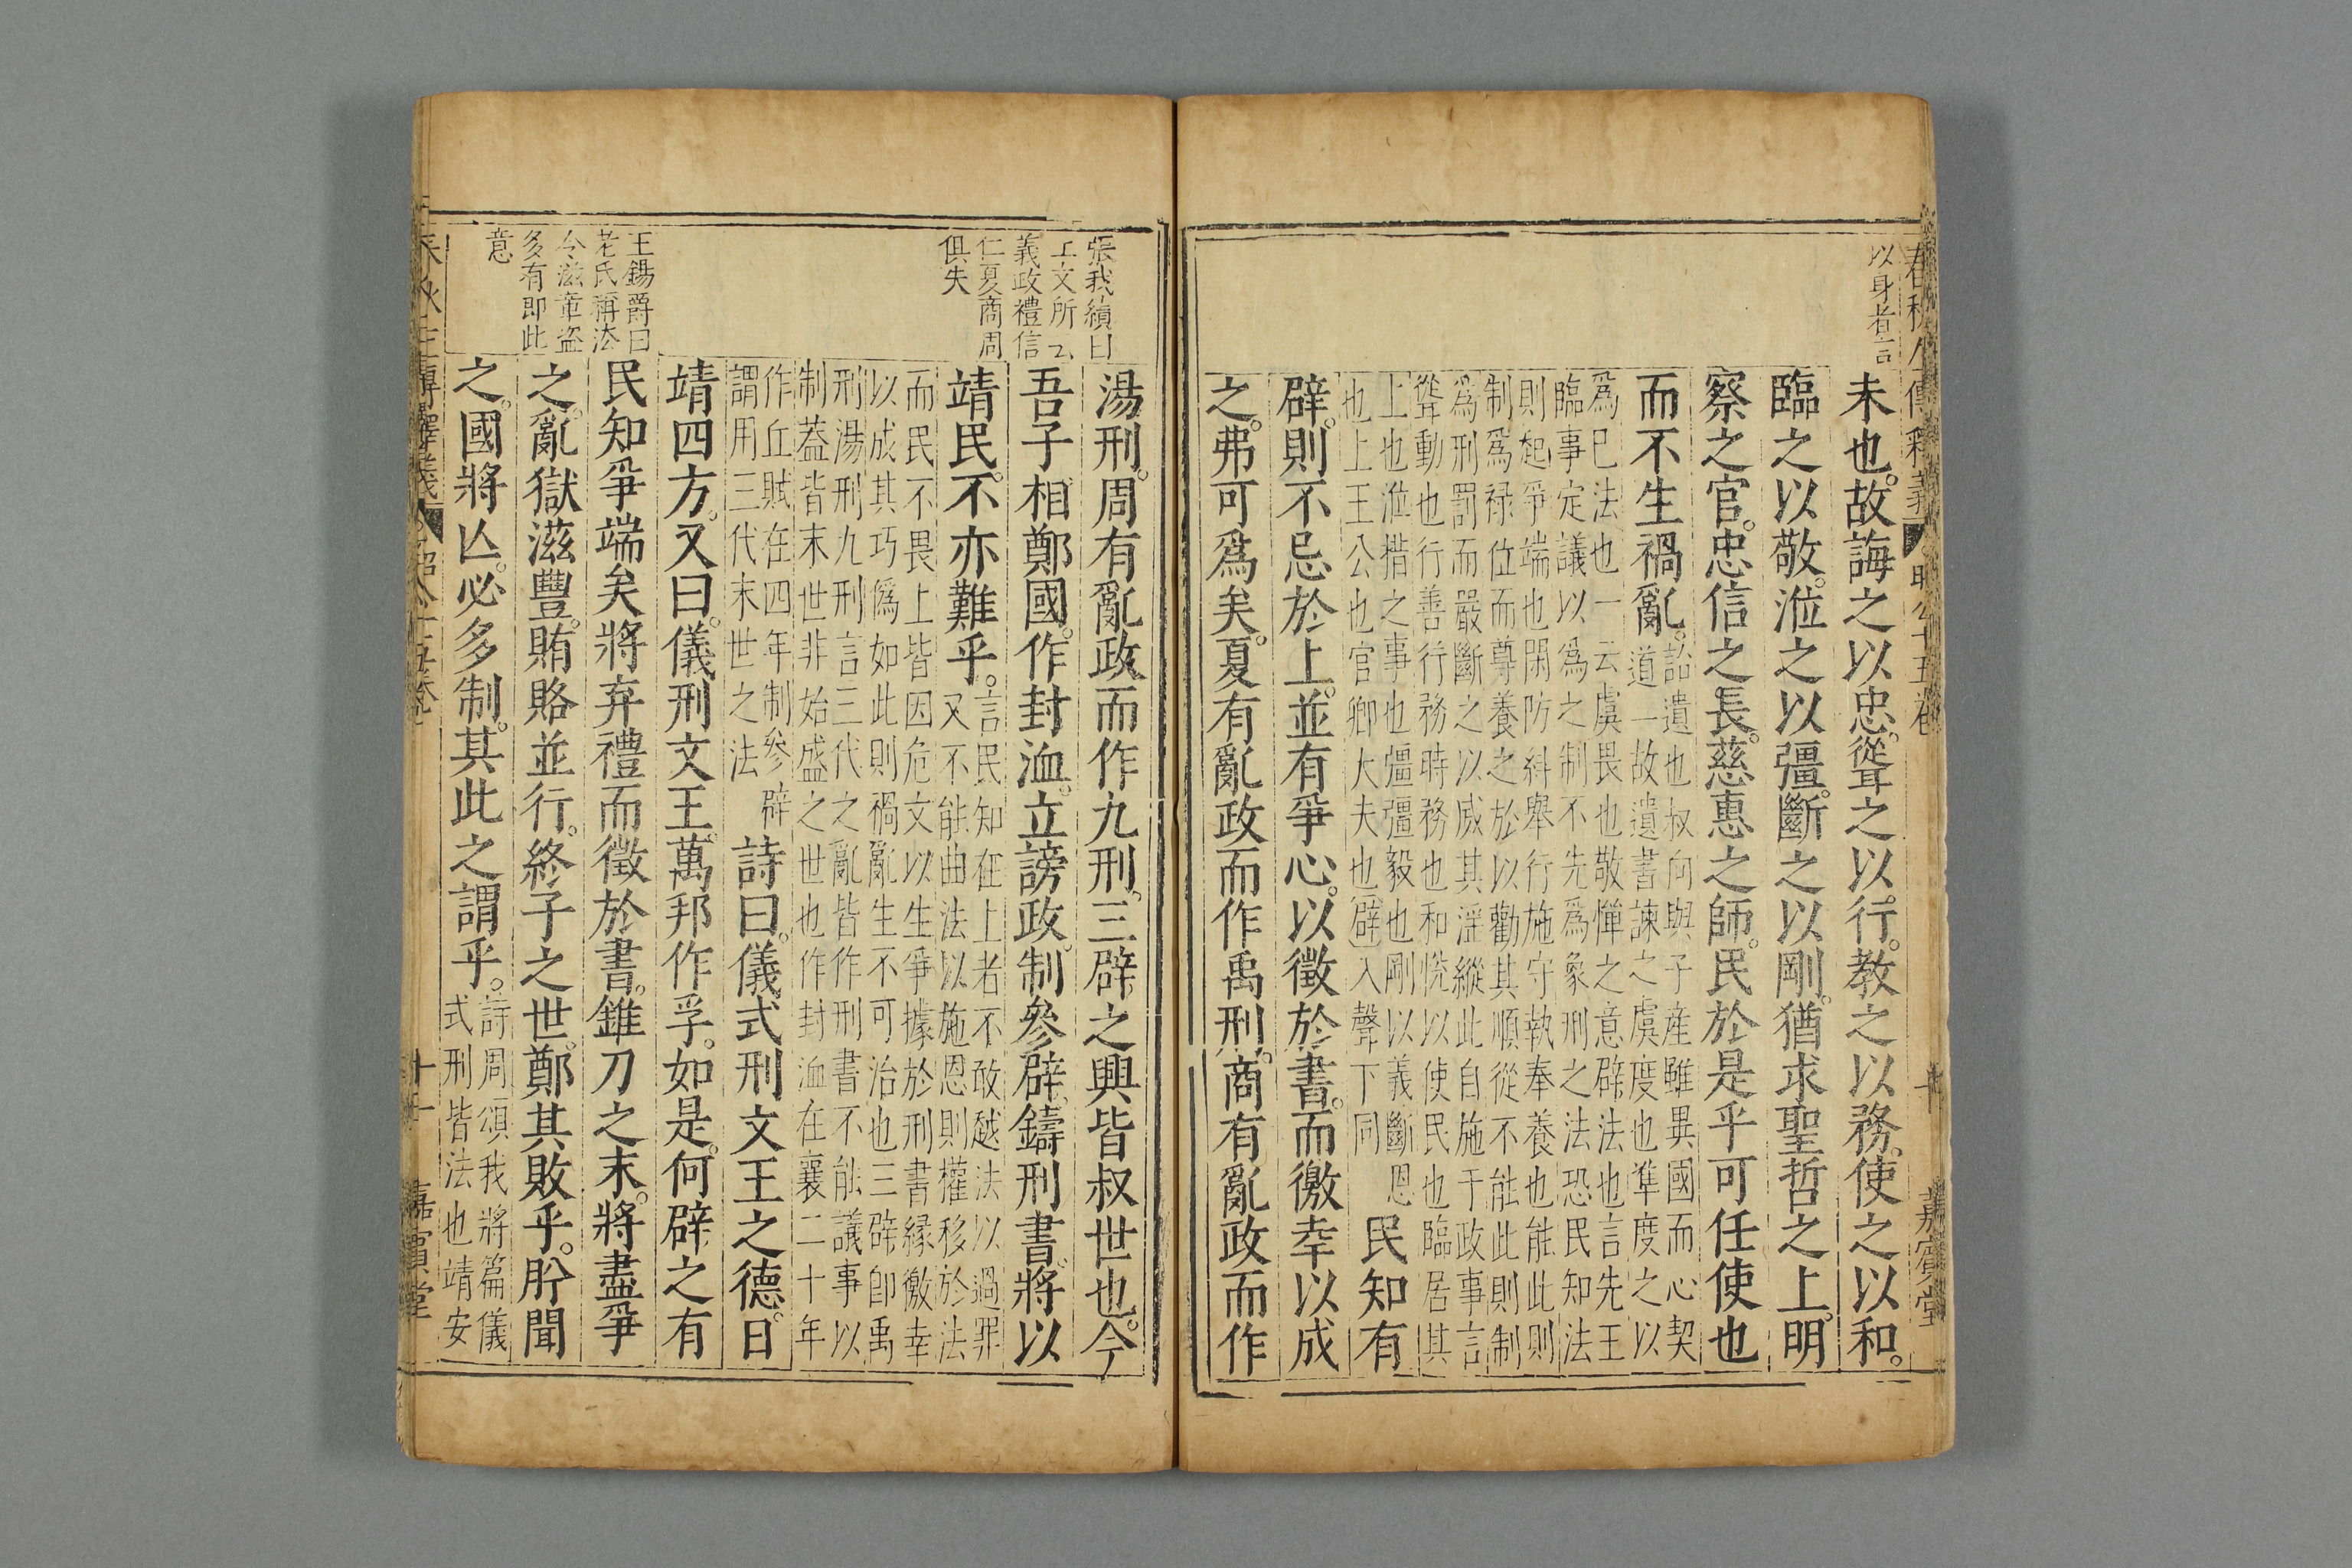 春秋左傳釋義 昭公十五卷 十一 嘉賓堂
以身者言
未也。故誨之以忠。聳之以行。教之以務。使之以和。
臨之以敬。涖之以彊。斷之以剛。猶求聖哲之上。明
察之官。忠信之長。慈惠之師。民於是乎可任使也
而不生禍亂。
訟遺也叔向與子產雖異國而心契
道一故遺書諫之虞度也準度之以
爲巳法也一云虞畏也敬憚之意辟法也言先王
臨事定議以爲之制不先爲象刑之法恐民知法
則起爭端也閑防糾舉行施守執奉養也能此則
制爲禄位而尊養之於以勸其順從不能此則制
爲刑罰而嚴斷之以威其淫縱此自施于政事言
聳動也行善行務時務也和悅以使民也臨居其
上也涖揩之事也彊彊毅也剛以義斷恩
也上王公也官卿大夫也辟入聲下同
民知有
辟。則不忌於上。並有爭心。以徵於書。而徼幸以成
之。弗可爲矣。夏有亂政而作禹刑。商有亂政而作
張我績曰
上文所云
義政禮信
仁夏商周
俱失
湯刑。周有亂政而作九刑。三辟之興皆叔世也。今
吾子相鄭國。作封洫。立謗政。制參辟。鑄刑書。將以
靖民。不亦難乎。
言民知在上者不敢越法以過罪
又不能曲法以施恩則權移於法
而民不畏上皆因危文以生爭據於刑書緣徼幸
以成其巧僞如此則禍亂生不可治也三辟卽禹
刑湯刑九刑言三代之亂皆作刑書不能議事以
制蓋皆末世非始盛之世也作封洫在襄二十年
作丘賦在四年制參辟
謂用三代末世之法
詩曰。儀式刑文王之德。日
靖四方。又曰。儀刑文王。萬邦作孚。如是。何辟之有
王錫爵曰
老氏稱法
令滋章盜
多有即此
意
民知爭端矣將弃禮而徵於書。錐刀之末。將盡爭
之。亂獄滋豐。賄賂並行。終子之世。鄭其敗乎。肸聞
之。國將亾。必多制。其此之謂乎。
詩周頌我將篇儀
式刑皆法也靖安
春秋左傳釋義 昭公十五卷 十一 嘉賓堂